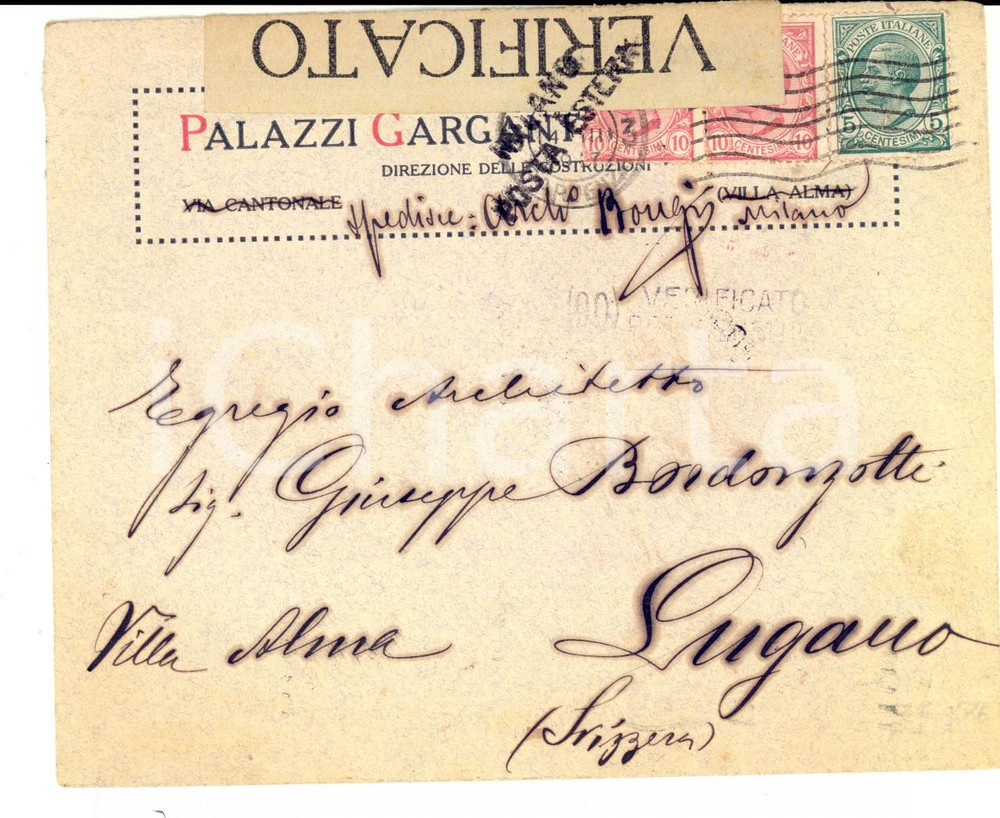 VERIFICATO
POSTE ITALIANE
10 CENTESIMI 10
10 CENTESIMI 10
5 CENTESIMI 5
MILANO
POSTA ESTERA
PALAZZI GARGANTI
DIREZIONE DELLE COSTRUZIONI
VIA CANTONALE
(VILLA ALMA)
spedisce: Arch Bongi Milano
VERIFICATO
Egregio Architetto
Sig. Giuseppe Bordonzotti
Villa Alma
Lugano
(Svizzera)
iCharta